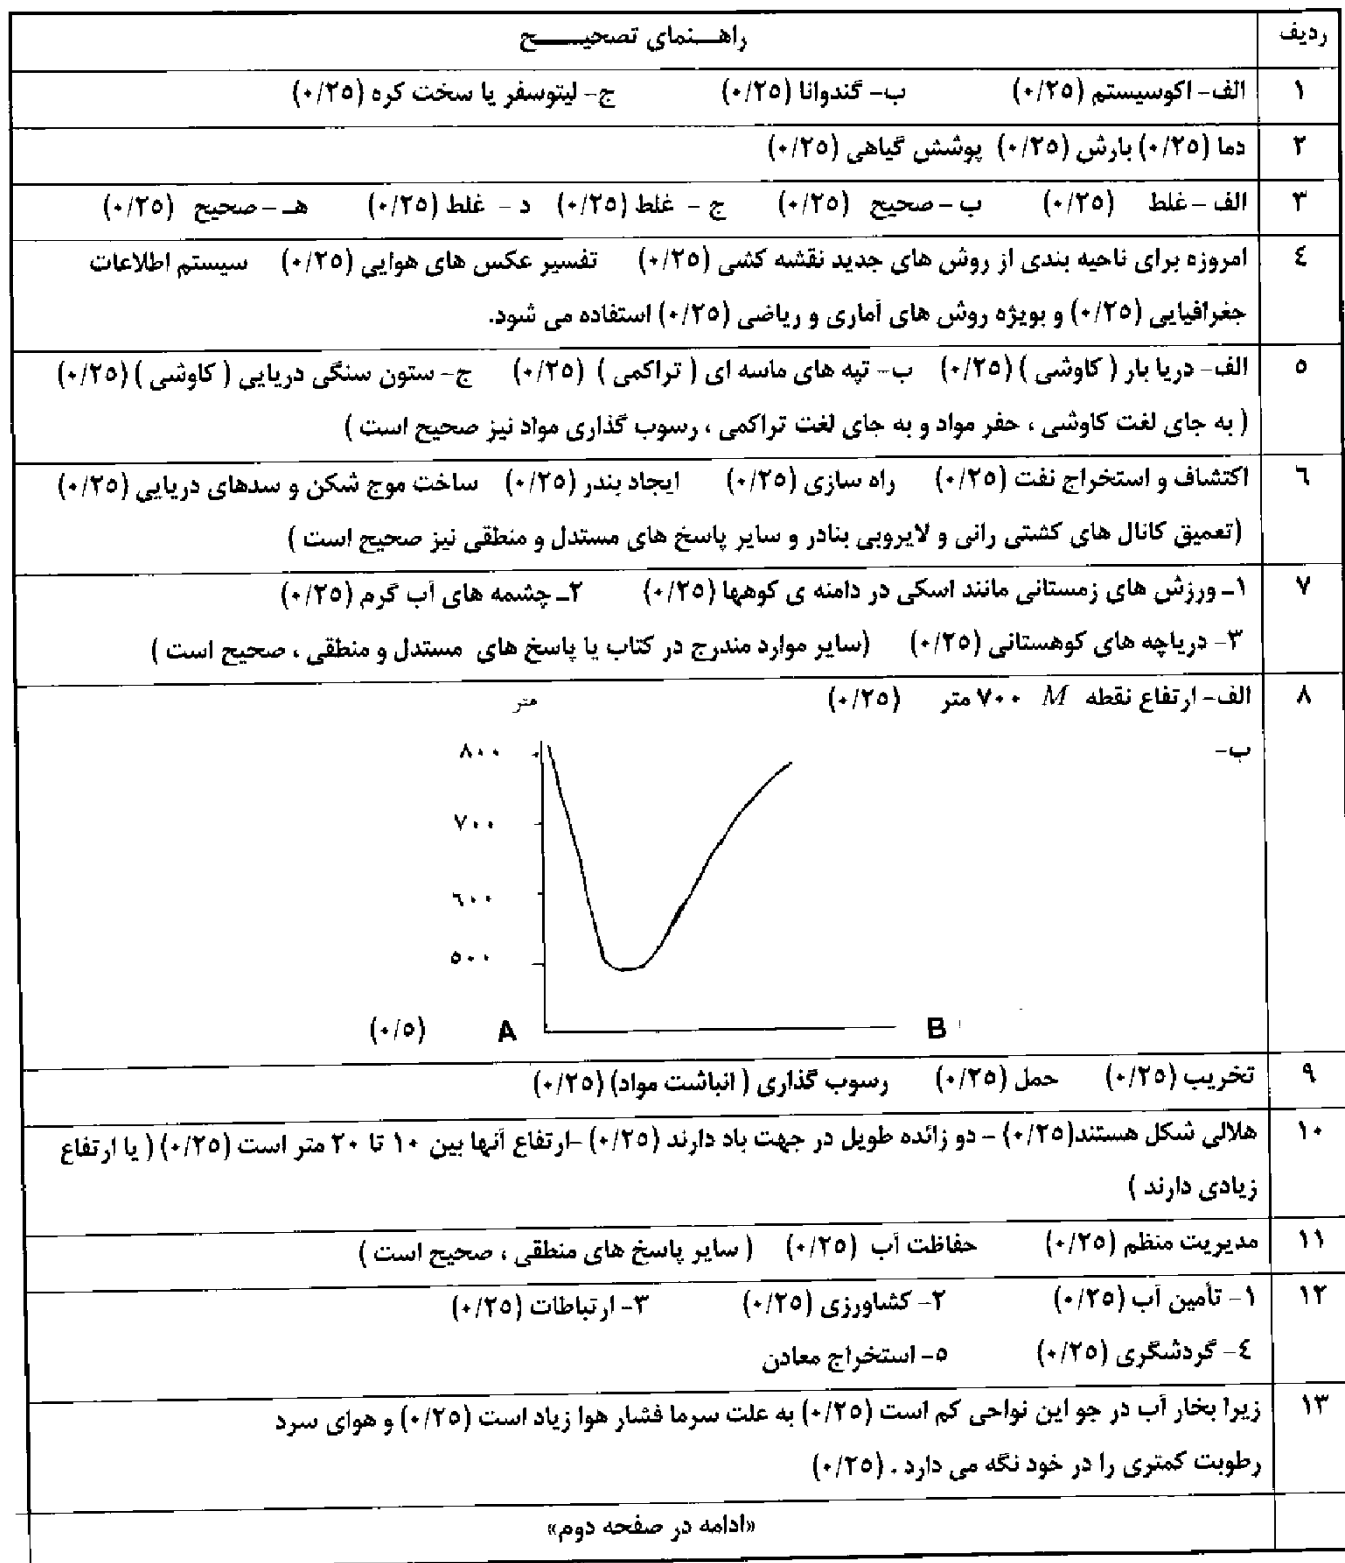 ردیف راهـــنمای تصحیـــــح
۱ الف- اکوسیستم (۰/۲۵) ب- گندوانا (۰/۲۵) ج- لیتوسفر یا سخت کره (۰/۲۵)
۲ دما (۰/۲۵) بارش (۰/۲۵) پوشش گیاهی (۰/۲۵)
۳ الف – غلط (۰/۲۵) ب – صحیح (۰/۲۵) ج – غلط (۰/۲۵) د – غلط (۰/۲۵) هـ – صحیح (۰/۲۵)
٤ امروزه برای ناحیه بندی از روش های جدید نقشه کشی (۰/۲۵) تفسیر عکس های هوایی (۰/۲۵) سیستم اطلاعات
جغرافیایی (۰/۲۵) و بویژه روش های آماری و ریاضی (۰/۲۵) استفاده می شود.
۵ الف- دریا بار ( کاوشی ) (۰/۲۵) ب- تپه های ماسه ای ( تراکمی ) (۰/۲۵) ج- ستون سنگی دریایی ( کاوشی ) (۰/۲۵)
( به جای لغت کاوشی ، حفر مواد و به جای لغت تراکمی ، رسوب گذاری مواد نیز صحیح است )
٦ اکتشاف و استخراج نفت (۰/۲۵) راه سازی (۰/۲۵) ایجاد بندر (۰/۲۵) ساخت موج شکن و سدهای دریایی (۰/۲۵)
(تعمیق کانال های کشتی رانی و لایروبی بنادر و سایر پاسخ های مستدل و منطقی نیز صحیح است )
۷ ۱ـ ورزش های زمستانی مانند اسکی در دامنه ی کوهها (۰/۲۵) ۲ـ چشمه های آب گرم (۰/۲۵)
۳- دریاچه های کوهستانی (۰/۲۵) (سایر موارد مندرج در کتاب یا پاسخ های مستدل و منطقی ، صحیح است )
۸ الف- ارتفاع نقطه M ۷۰۰ متر (۰/۲۵)
متر
ب-
۸۰۰
۷۰۰
٦۰۰
۵۰۰
(۰/۵) A B
۹ تخریب (۰/۲۵) حمل (۰/۲۵) رسوب گذاری ( انباشت مواد) (۰/۲۵)
۱۰ هلالی شکل هستند(۰/۲۵) – دو زائده طویل در جهت باد دارند (۰/۲۵) –ارتفاع آنها بین ۱۰ تا ۲۰ متر است (۰/۲۵) ( یا ارتفاع
زیادی دارند )
۱۱ مدیریت منظم (۰/۲۵) حفاظت آب (۰/۲۵) ( سایر پاسخ های منطقی ، صحیح است )
۱۲ ۱- تأمین آب (۰/۲۵) ۲- کشاورزی (۰/۲۵) ۳- ارتباطات (۰/۲۵)
٤- گردشگری (۰/۲۵) ۵- استخراج معادن
۱۳ زیرا بخار آب در جو این نواحی کم است (۰/۲۵) به علت سرما فشار هوا زیاد است (۰/۲۵) و هوای سرد
رطوبت کمتری را در خود نگه می دارد . (۰/۲۵)
«ادامه در صفحه دوم»